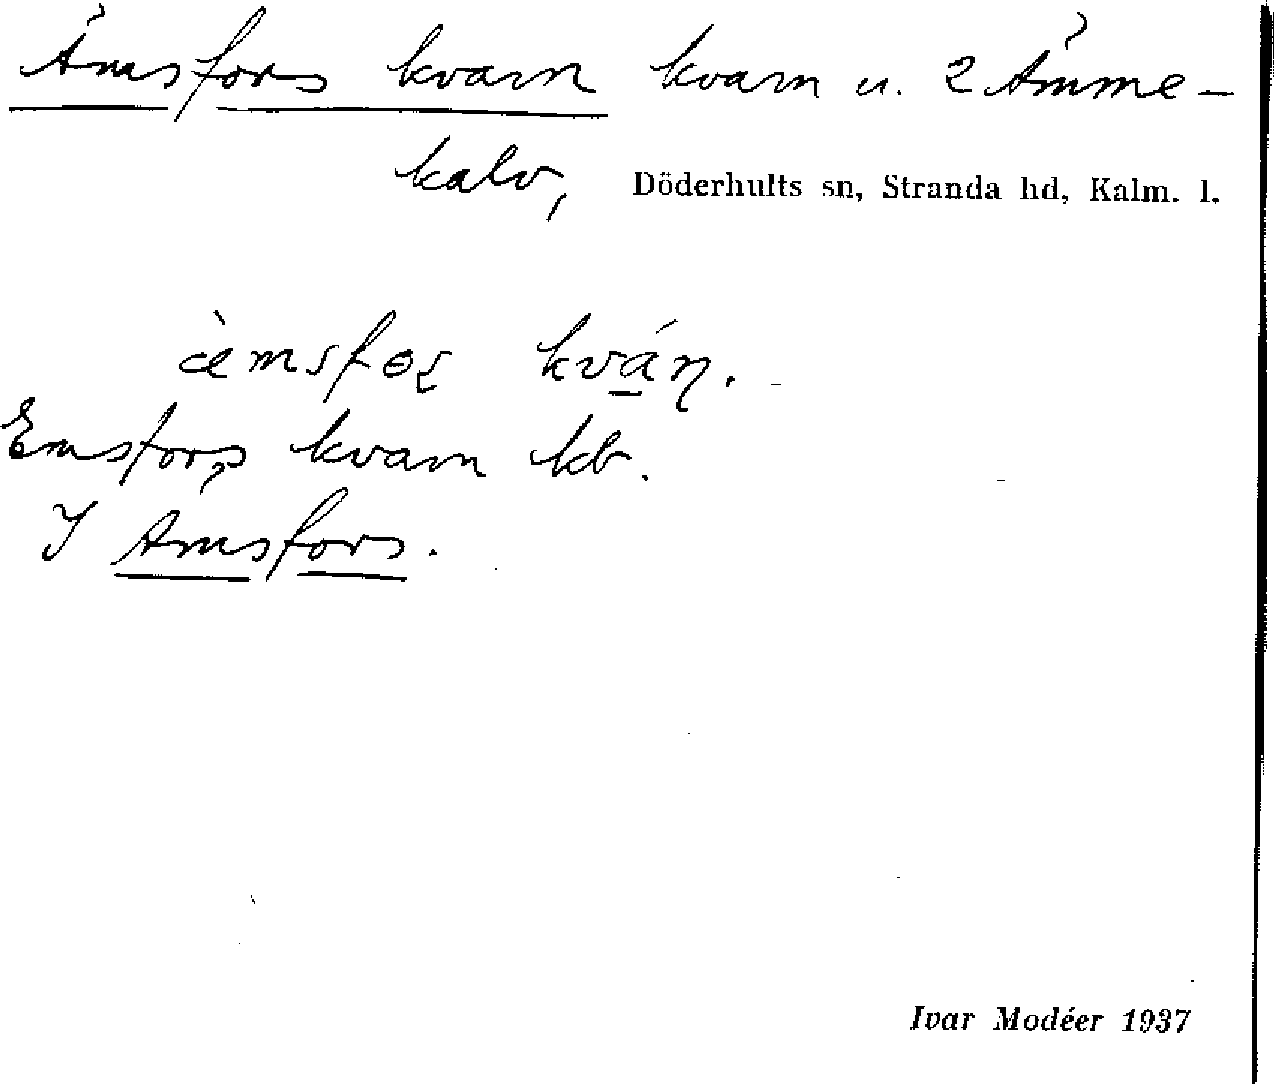 Ämsfors kvarn kvarn u. 2 Ämme-
kalv, Döderhults sn, Stranda hd, Kalm. l.
æ̀msfoʂ kván̢.
Emsfors kvarn kb.
I Ämsfors.
Ivar Modéer 1937